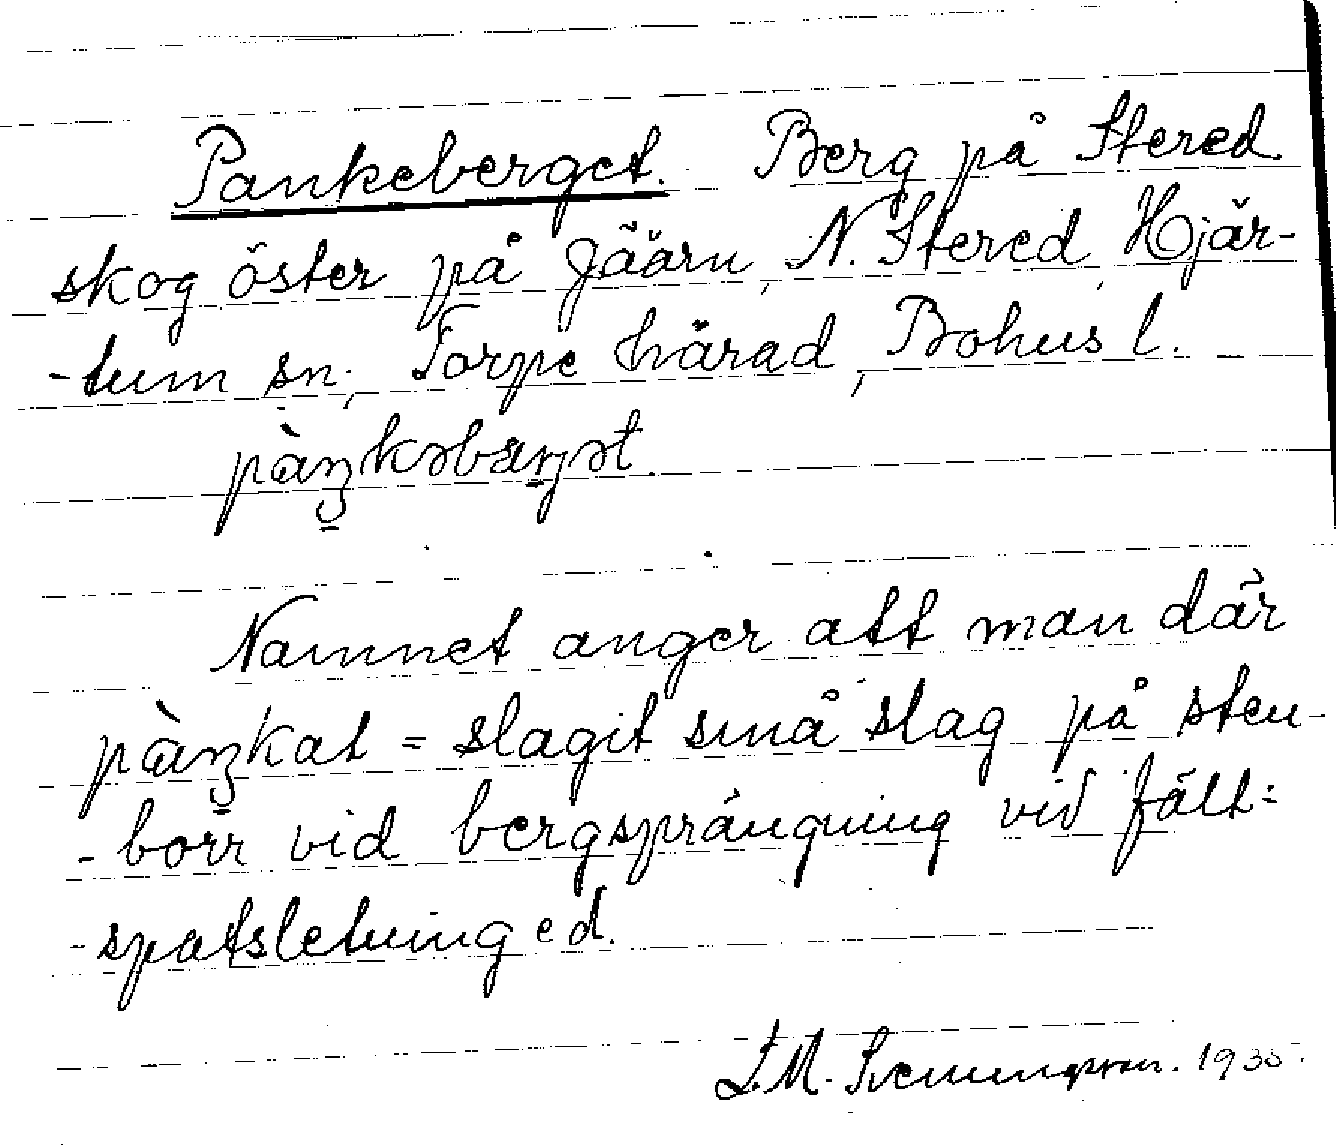 Pankeberget. Berg på Stered
skog öster på Jäärn, N. Stered, Hjär-
-tum sn., Torpe härad, Bohus l.
pàŋkəbærjət.
Namnet anger att man där
pàŋkat = slagit små slag på sten-
-borr vid bergsprängning vid fält=
-spatsletning ed.
L.M. Svenungsson. 1935.